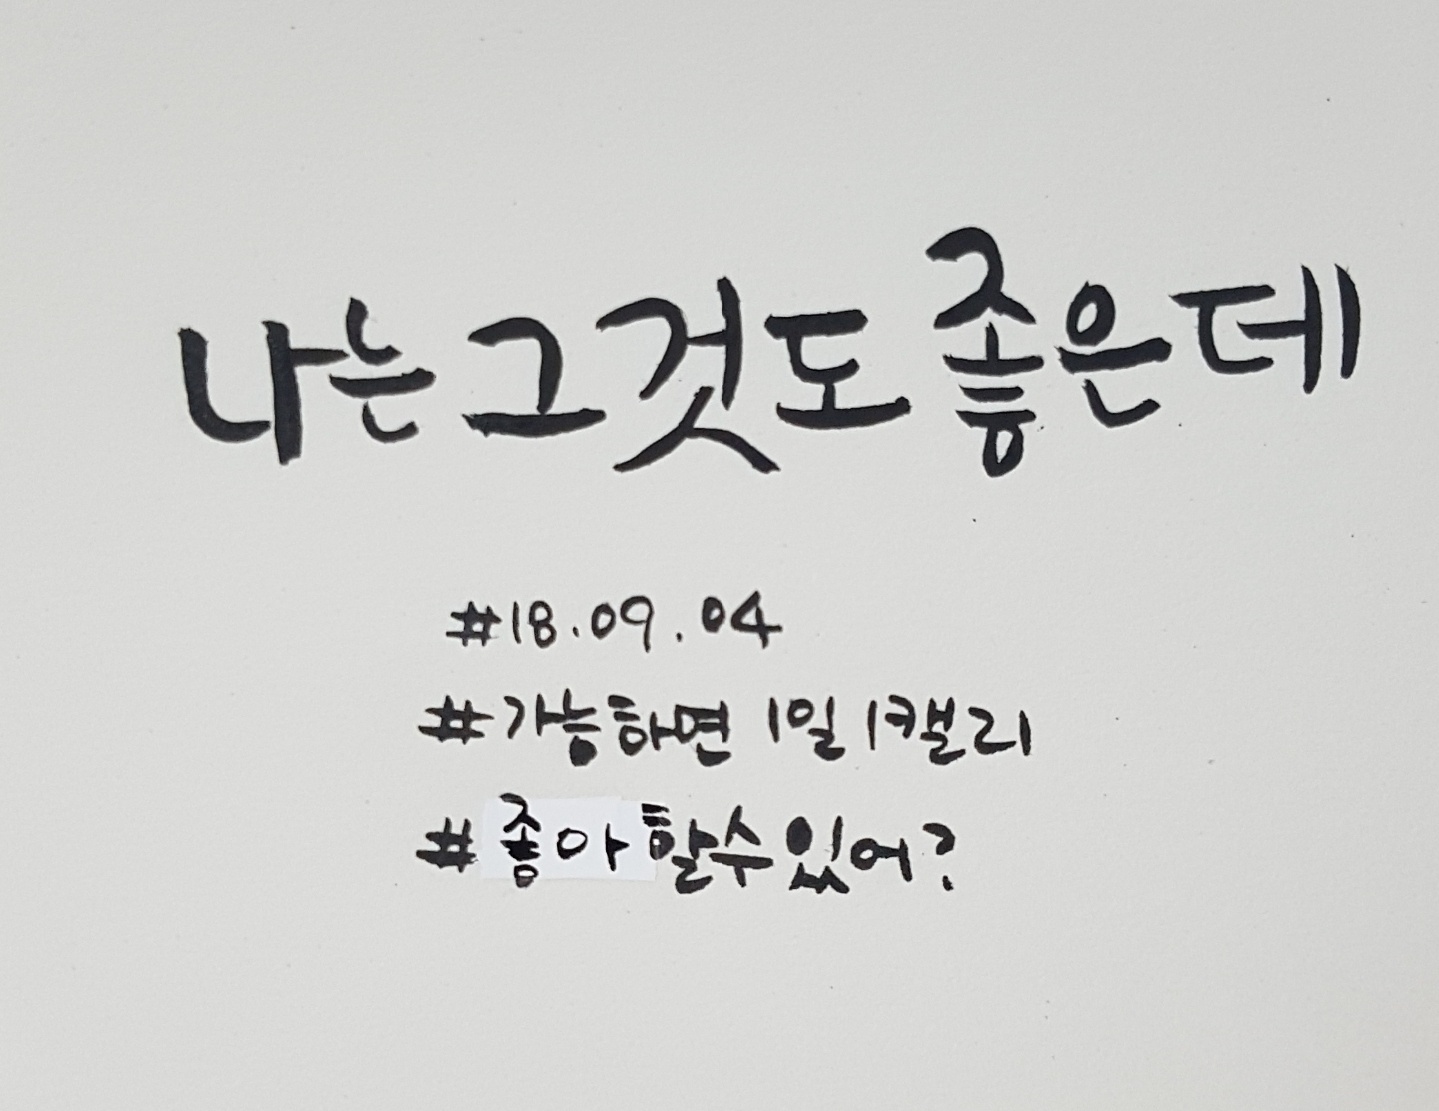 나는 그것도 좋은데
#18.09.04
#가능하면 1일 1캘리
#좋아할수있어?